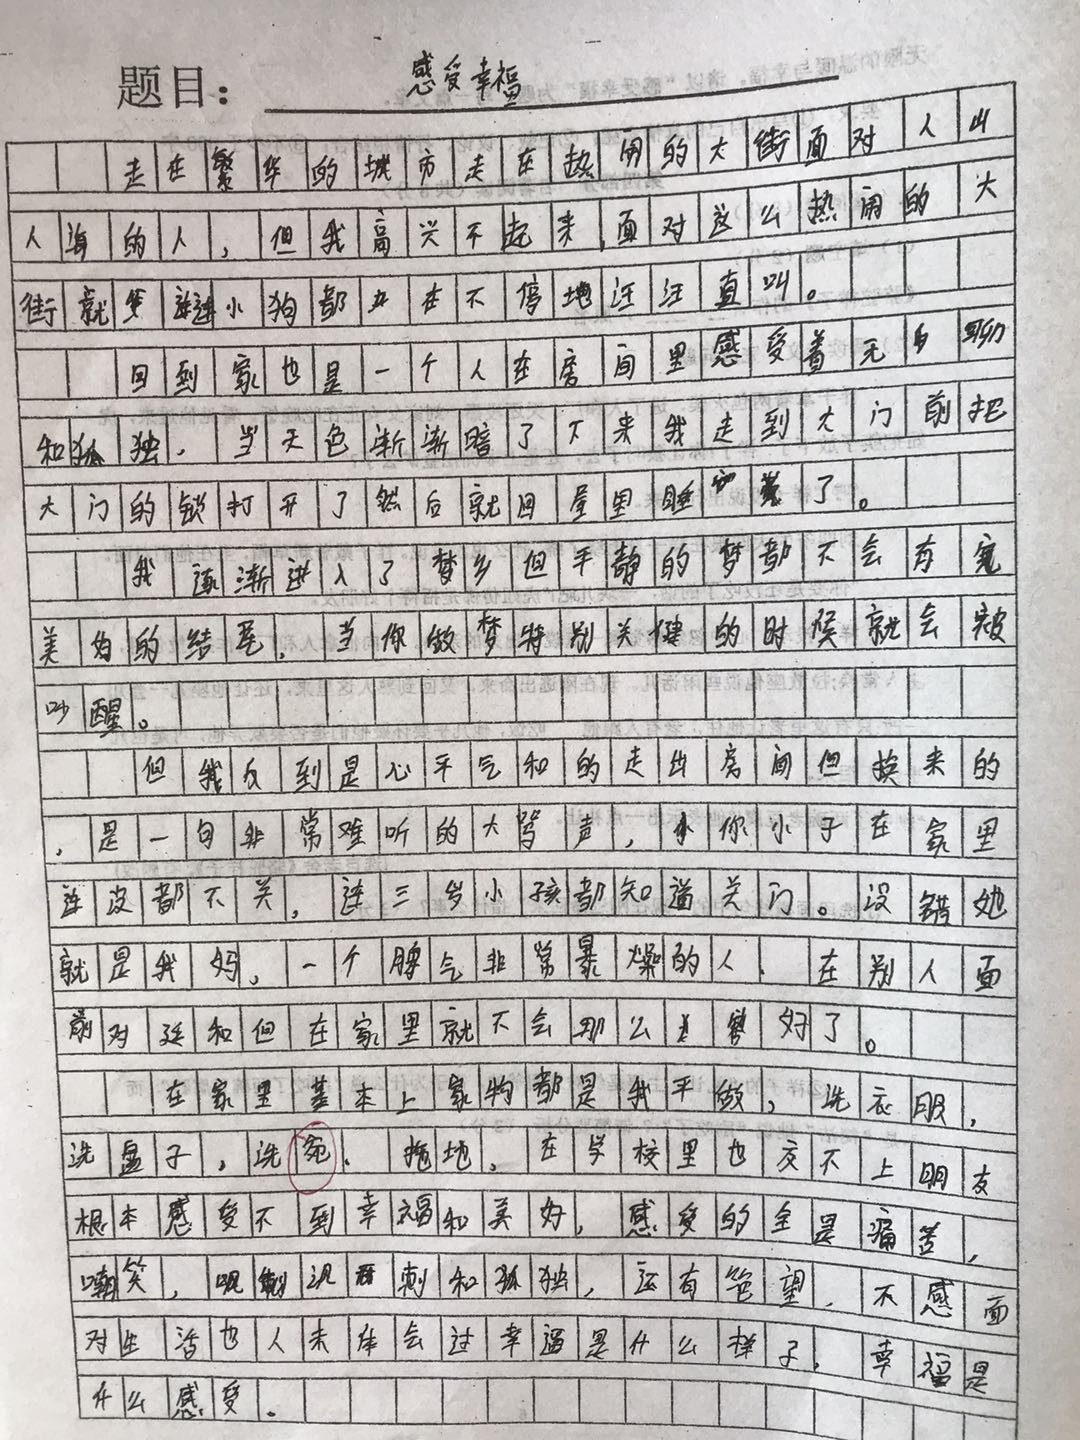 题目：感受幸福
走在繁华的城市走在热闹的大街面对人山
人海的人，但我高兴不起来，面对这么热闹的大
街就连小狗都在不停地汪汪直叫。
回到家也是一个人在房间里感受着无聊
和孤独，当天色渐渐暗了下来我走到大门前把
大门的锁打开了然后就回屋里睡觉了。
我逐渐进入了梦乡但平静的梦都不会有完
美的结尾，当你做梦特别关健的时候就会被
吵醒。
但我反到是心平气和的走出房间但换来的
，是一句非常难听的大骂声，你小子在家里
连没都不关，连三岁小孩都知道关门。没错她
就是我妈，一个脾气非常暴燥的人、在别人面
前对还和但在家里就不会那么好了。
在家里基本上家物都是我平做，洗衣服，
洗盘子，洗宛、拖地，在学校里也交不上朋友
根本感受不到幸福和美好，感受的全是痛苦，
嘲笑，讽刺和孤独，还有绝望，不感面
对生活也人未体会过幸逼是什么样子，幸福是
什么感受。